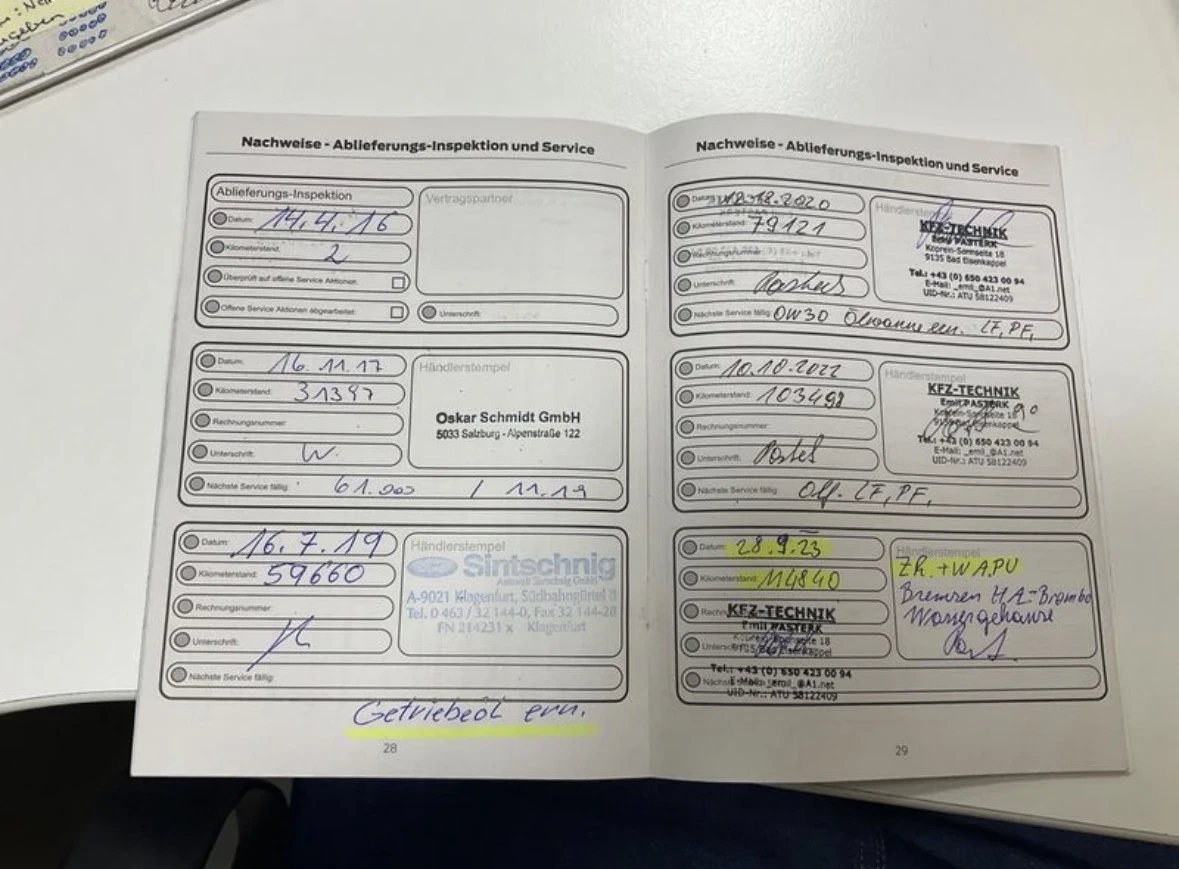 Nachweise - Ablieferungs-Inspektion und Service
Ablieferungs-Inspektion
Vertragspartner
Datum: 14.4.16
Kilometerstand: 2
Überprüft auf offene Service Aktionen:
Offene Service Aktionen abgearbeitet:
Unterschrift:
Datum: 16.11.17
Händlerstempel
Kilometerstand: 31397
Oskar Schmidt GmbH
5033 Salzburg - Alpenstraße 122
Rechnungsnummer:
Unterschrift: W.
Nächste Service fällig: 61.000 / 11.19
Datum: 16.7.19
Händlerstempel
Kilometerstand: 59660
Sintschnig
A-9021 Klagenfurt, Südbahngürtel 8
Tel. 0 463 / 32 144-0, Fax 32 144-28
FN 214231 x Klagenfurt
Rechnungsnummer:
Unterschrift:
Nächste Service fällig:
Getriebeöl ern.
28
Nachweise - Ablieferungs-Inspektion und Service
Datum: 2020
Händlerstempel
Kilometerstand: 79121
KFZ-TECHNIK
Emil PASTERK
Koprein-Sonnseite 18
9135 Bad Eisenkappel
Tel.: +43 (0) 650 423 00 94
E-Mail: _emil_@A1.net
UID-Nr.: ATU 58122409
Rechnungsnummer:
Unterschrift:
Nächste Service fällig: 0W30 Ölwanne ern. LF, PF,
Datum: 10.10.2022
Händlerstempel
Kilometerstand: 103498
KFZ-TECHNIK
Emil PASTERK
Koprein-Sonnseite 18
9135 Bad Eisenkappel
Tel.: +43 (0) 650 423 00 94
E-Mail: _emil_@A1.net
UID-Nr.: ATU 58122409
Rechnungsnummer:
Unterschrift:
Nächste Service fällig: Ölf. LF, PF,
Datum: 28.9.23
Händlerstempel
Kilometerstand: 114840
ZR. + WAPU
Bremsen HA-Brembo
Wassergehäuse
KFZ-TECHNIK
Emil PASTERK
Koprein-Sonnseite 18
9135 Bad Eisenkappel
Tel.: +43 (0) 650 423 00 94
E-Mail: _emil_@A1.net
UID-Nr.: ATU 58122409
29